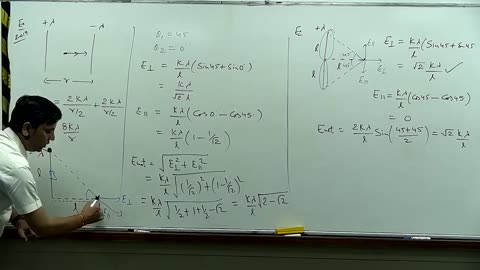 Ex
+λ
-λ
r
= 2Kλ/(r/2) + 2Kλ/(r/2)
8Kλ/r
λ
l
l
E⊥
E∥
θ₁ = 45
θ₂ = 0
E⊥ = Kλ/l (Sin45 + Sin0)
= Kλ/(√2 l)
E∥ = Kλ/l (Cos0 - Cos45)
= Kλ/l (1 - 1/√2)
Enet = √(E⊥² + E∥²)
= Kλ/l √((1/√2)² + (1 - 1/√2)²)
= Kλ/l √(1/2 + 1 + 1/2 - √2) = Kλ/l √(2 - √2)
Ex
+λ
l
l
45
45
l
E∥
E⊥
E∥
E⊥ = Kλ/l (Sin45 + Sin45)
= √2 Kλ/l ✓
E∥ = Kλ/l (Cos45 - Cos45)
= 0
Enet = 2Kλ/l Sin((45+45)/2) = √2 Kλ/l